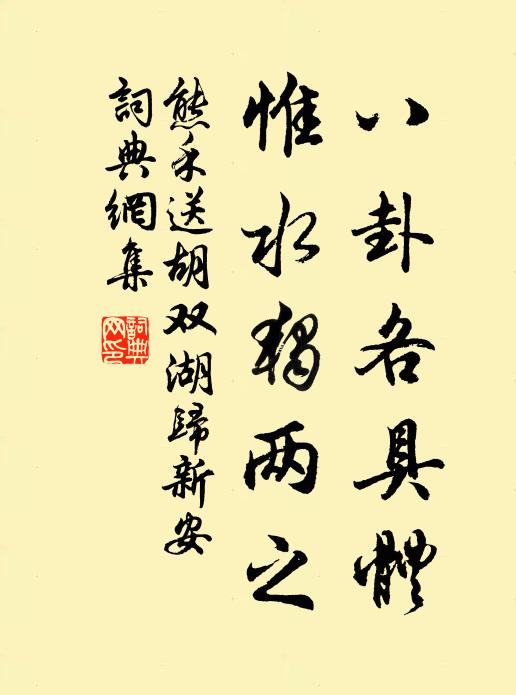 八卦各具體
惟水獨兩之
熊禾送胡双湖歸新安
詞典網集
詞典網印